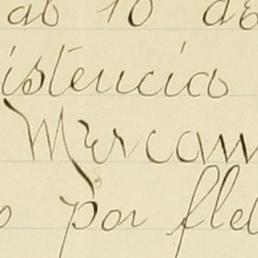 al 10 de
istencia
Mercan
o por fle